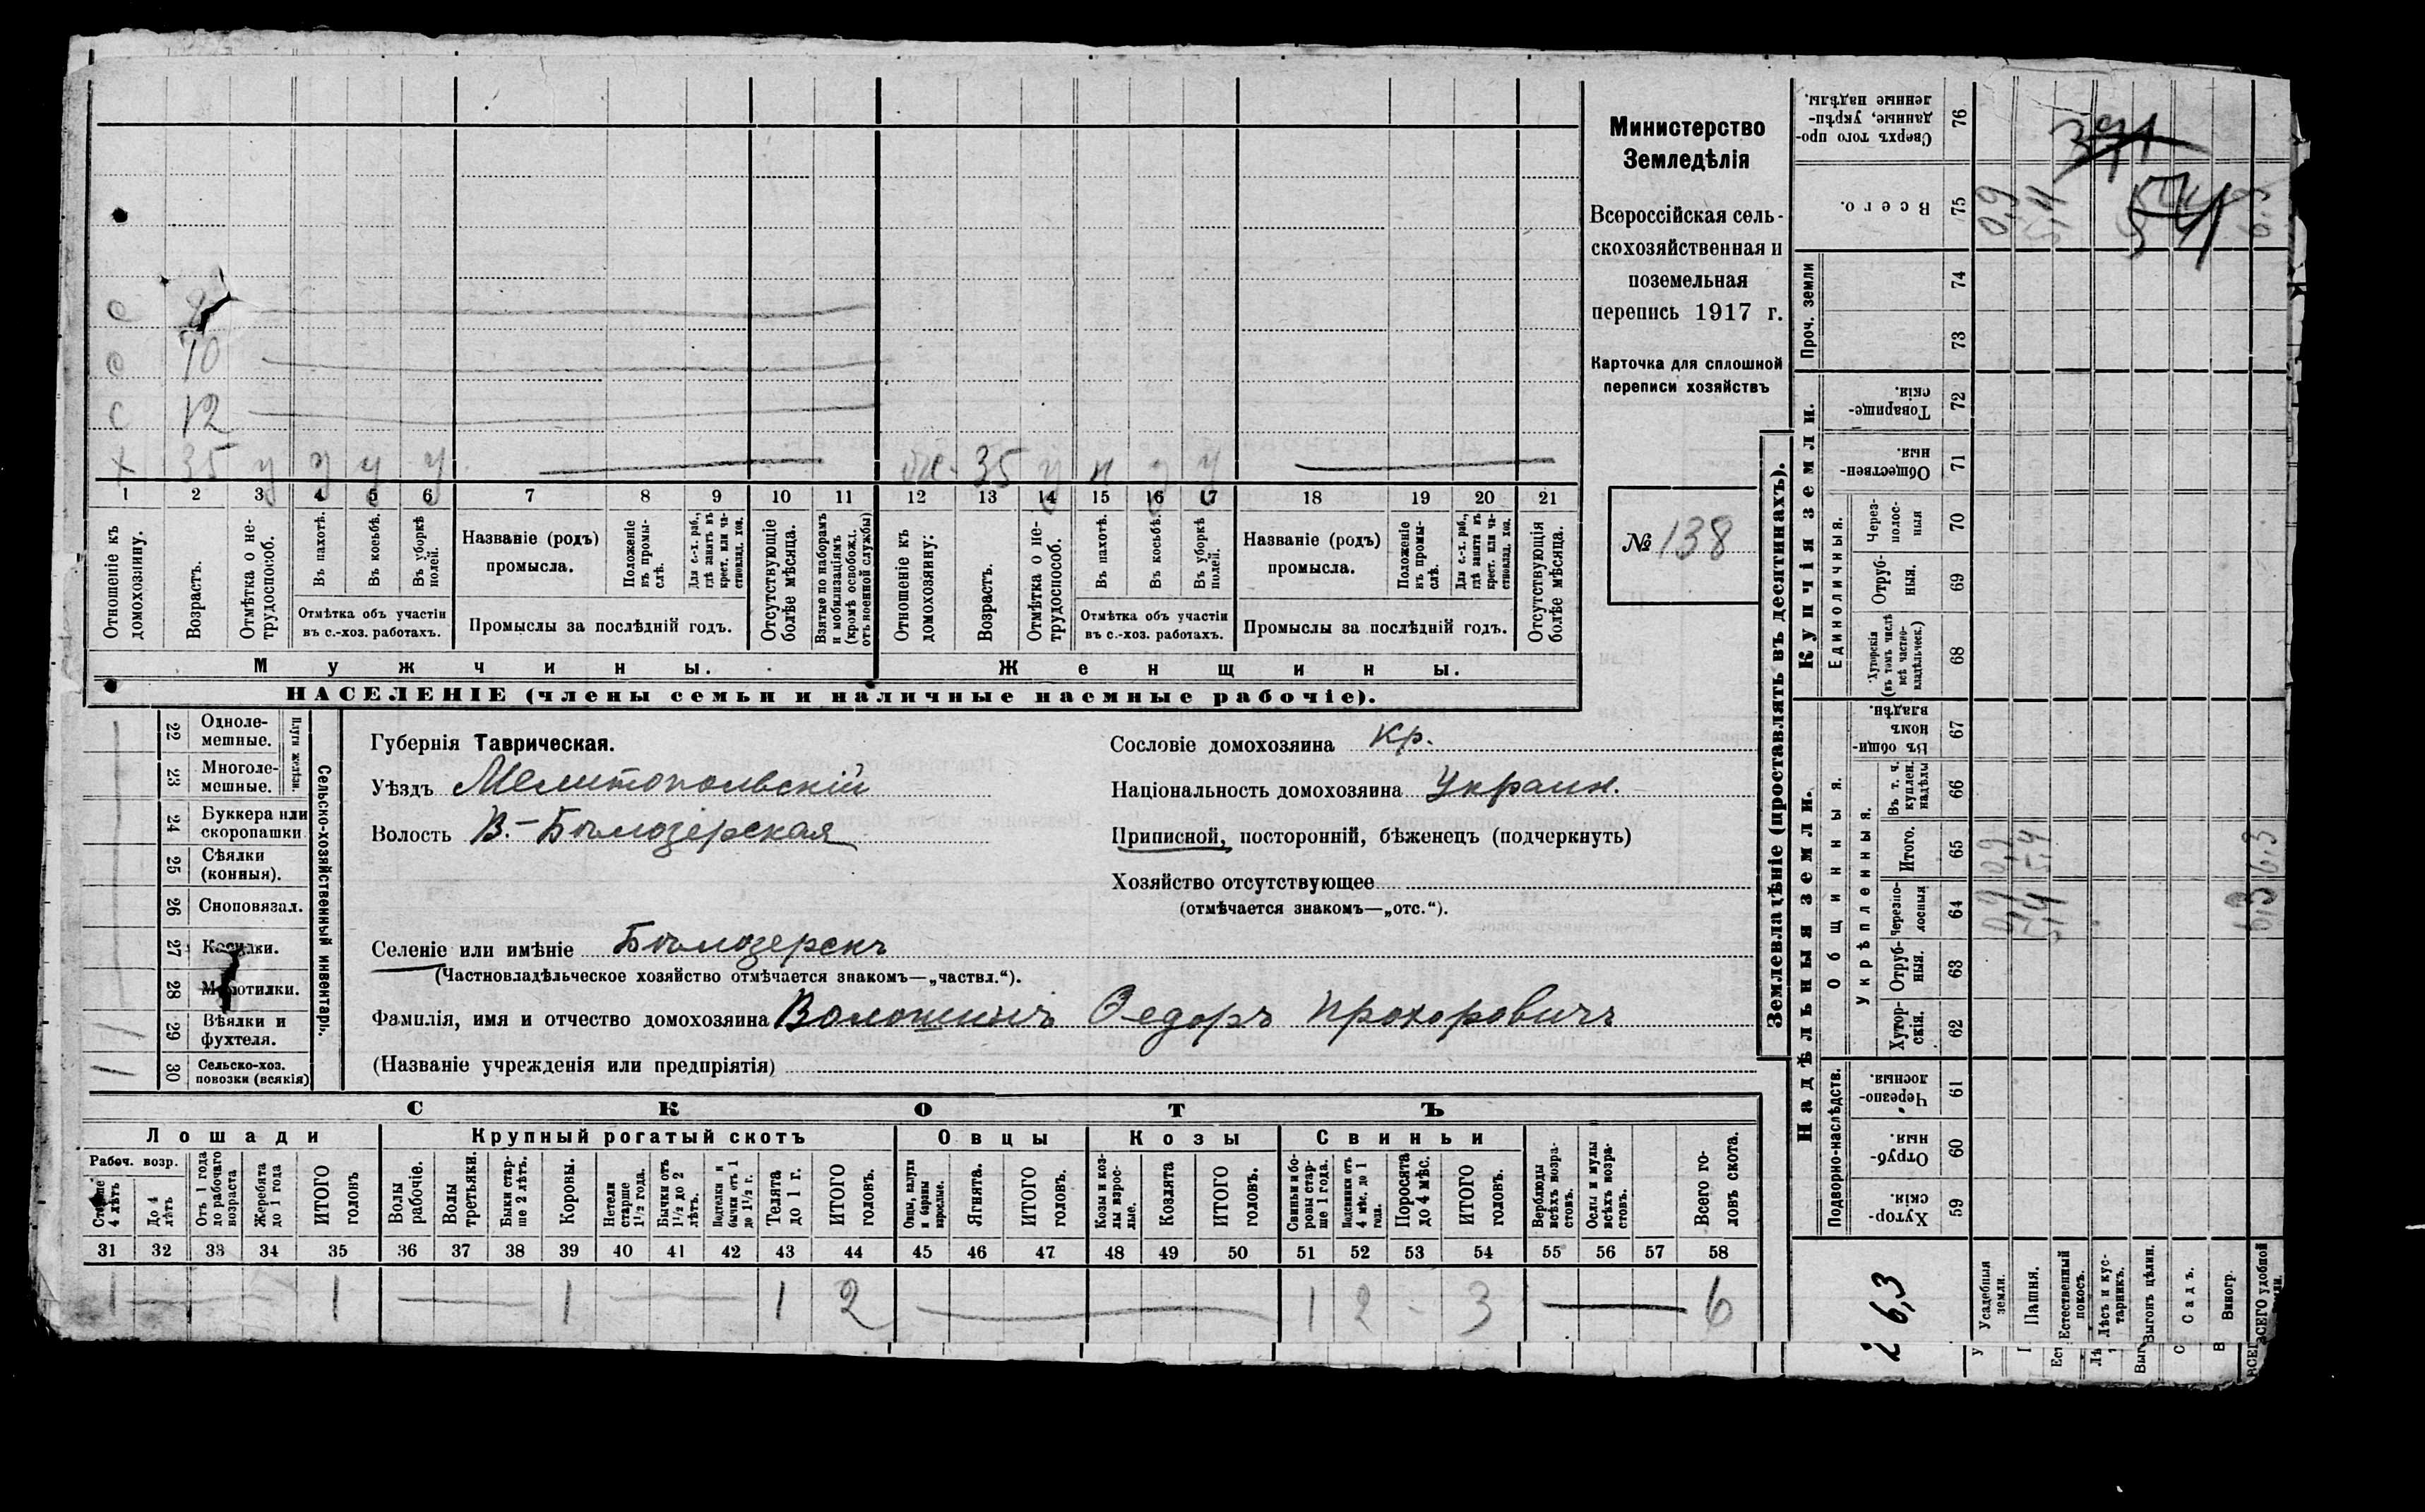 Министерство
Земледѣлія
Всероссійская сель-
скохозяйственная и
поземельная
перепись 1917 г.
Карточка для сплошной
переписи хозяйствъ
№ 138
с
с 10
с 12
х 35 у у у у
ж. 35 у н у у
1 2 3 4 5 6 7 8 9 10 11 12 13 14 15 16 17 18 19 20 21
Отношеніе къ домохозяину.
Возрастъ.
Отмѣтка о не-трудоспособ.
Въ пахотѣ.
Въ косьбѣ.
Въ уборкѣ полей.
Отмѣтка объ участіи
въ с.-хоз. работахъ.
Названіе (родъ)
промысла.
Положеніе въ промы-слѣ.
Для с.-х. раб., гдѣ занятъ въ крест. или ча-стновлад. хоз.
Промыслы за послѣдній годъ.
Отсутствующіе болѣе мѣсяца.
Взятые по наборамъ и мобилизаціямъ (кромѣ освобожд. отъ военной службы)
Отношеніе къ домохозяину:
Возрастъ.
Отмѣтка о не-трудоспособ.
Въ пахотѣ.
Въ косьбѣ.
Въ уборкѣ полей.
Отмѣтка объ участіи
въ с.-хоз. работахъ.
Названіе (родъ)
промысла.
Положеніе въ промы-слѣ.
Для с.-х. раб., гдѣ занята въ крест. или ча-стновлад. хоз.
Промыслы за послѣдній годъ.
Отсутствующія болѣе мѣсяца.
Мужчины.
Женщины.
НАСЕЛЕНІЕ (члены семьи и наличные наемные рабочіе).
22 Одноле-мешные.
23 Многоле-мешные.
Плуги желѣзн.
24 Буккера или скоропашки
25 Сѣялки (конныя).
26 Сноповязал.
27 Косилки.
28 Молотилки.
29 Вѣялки и фухтеля. 1
30 Сельско-хоз. повозки (всякія) 1
Сельско-хозяйственный инвентарь.
Губернія Таврическая.
Уѣздъ Мелитопольскій
Волость В.-Бѣлозерская
Селеніе или имѣніе Бѣлозерскъ
(Частновладѣльческое хозяйство отмѣчается знакомъ—„частвл.“).
Фамилія, имя и отчество домохозяина Волошинъ Федоръ Прохоровичъ
(Названіе учрежденія или предпріятія)
Сословіе домохозяина кр.
Національность домохозяина Украин.
Приписной, посторонній, бѣженецъ (подчеркнуть)
Хозяйство отсутствующее
(отмѣчается знакомъ—„отс.“).
СКОТЪ
Лошади
Крупный рогатый скотъ
Овцы
Козы
Свиньи
Рабоч. возр.
Старше 4 лѣтъ
До 4 лѣтъ
Отъ 1 года до рабочаго возраста
Жеребята до 1 года
ИТОГО головъ
Волы рабочіе.
Волы третьяки.
Быки стар-ше 2 лѣтъ.
Коровы.
Нетели старше 1½ года.
Бычки отъ 1½ до 2 лѣтъ.
Подтелки и бычки отъ 1 до 1½ г.
Телята до 1 г.
ИТОГО головъ.
Овцы, валухи и бараны взрослые.
Ягнята.
ИТОГО головъ.
Козы и коз-лы взрос-лые.
Козлята
ИТОГО головъ.
Свиньи и бо-ровы стар-ше 1 года.
Подсвинки отъ 4 мѣс. до 1 года.
Поросята до 4 мѣс.
ИТОГО головъ.
Верблюды всѣхъ возра-стовъ.
Ослы и мулы всѣхъ возра-стовъ.
Всего го-ловъ скота.
31 32 33 34 35 36 37 38 39 40 41 42 43 44 45 46 47 48 49 50 51 52 53 54 55 56 57 58
1 1 1 1 2 1 2 - 3 6
Землевладѣніе (проставлять въ десятинахъ).
Надѣльныя земли.
Купчія земли.
Проч. земли
Подворно-наслѣдств.
Общинныя.
Укрѣпленныя.
Единоличныя.
59 Хутор-скія.
60 Отруб-ныя.
61 Черезпо-лосныя.
62 Хутор-скія.
63 Отруб-ныя.
64 Черезпо-лосныя 0,9 5,4 6,3
65 Итого. 0,9 5,4 6,3
66 Въ т. ч. куплен. надѣлы
67 Въ общи-номъ владѣн.
68 Хуторскія (въ томъ числѣ всѣ частно-владѣльческ.)
69 Отруб-ныя.
70 Через-полос-ныя
71 Обществен-ныя.
72 Товарище-скія.
73
74
75 Всего. 0,9 5,4 6,3
76 Сверхъ того про-данные, укрѣп-ленные надѣлы.
6,3
Усадебныя земли.
Пашня.
Естественный покосъ.
Лѣсъ и кус-тарникъ.
Выгонъ цѣлин.
Садъ.
Виногр.
ВСЕГО удобной земли.